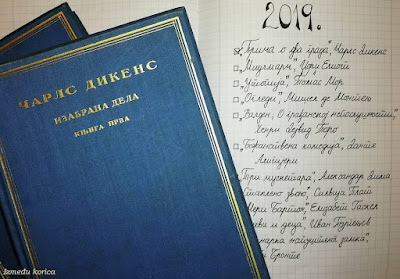 ЧАРЛС ДИКЕНС
ИЗАБРАНА ДЕЛА
КЊИГА ПРВА
2019.
„Прича о два града", Чарлс Дикенс
„Мидлмарч", Џорџ Елиот
„Утопија", Томас Мор
„Огледи", Мишел де Монтењ
„Валден; О грађанској непослушности",
Хенри Дејвид Торо
„Божанствена комедија", Данте
Алигијери
Три мускетара", Александар Дима
стаклено звоно", Силвија Плат
Мери Бартон", Елизабет Гаскел
еви и деца", Иван Тургењев
Бронте
Između korica